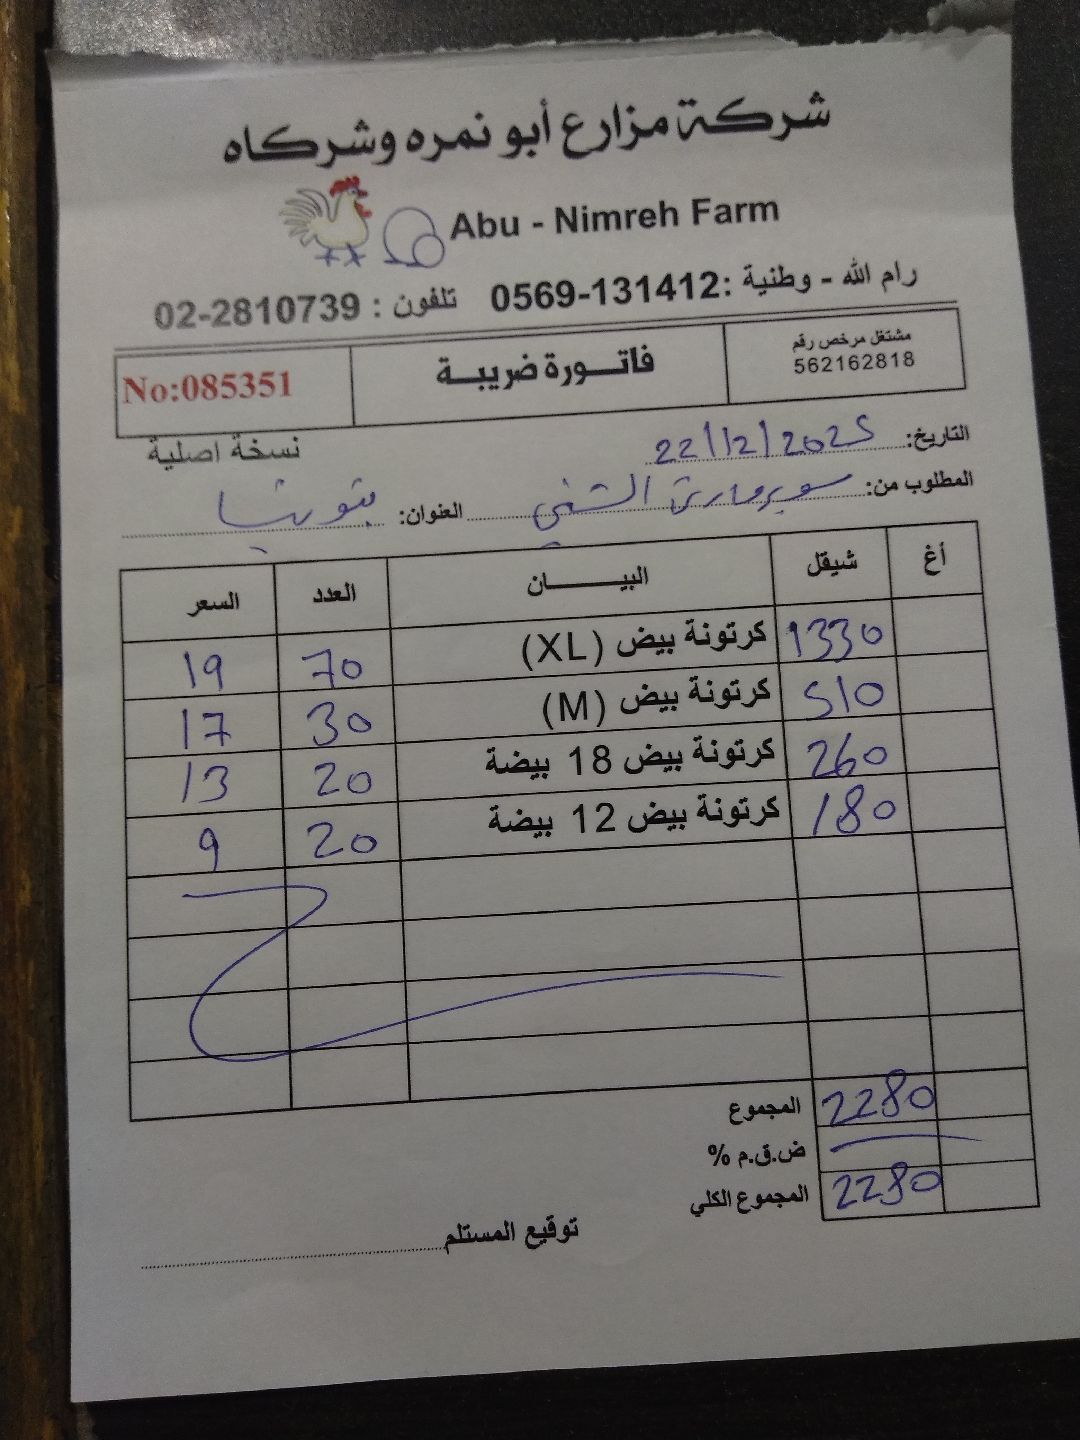 شركة مزارع أبو نمره وشركاه
Abu - Nimreh Farm
رام الله - وطنية :0569-131412 تلفون : 02-2810739
مشتغل مرخص رقم
562162818
فاتـــورة ضريبـــة
No:085351
نسخة اصلية
التاريخ: 22/12/2025
المطلوب من: سوبرماركت العنوان:
أغ شيقل البيـــــــان العدد السعر
1330 كرتونة بيض (XL) 70 19
510 كرتونة بيض (M) 30 17
260 كرتونة بيض 18 بيضة 20 13
180 كرتونة بيض 12 بيضة 20 9
المجموع 2280
ض.ق.م %
المجموع الكلي 2280
توقيع المستلم